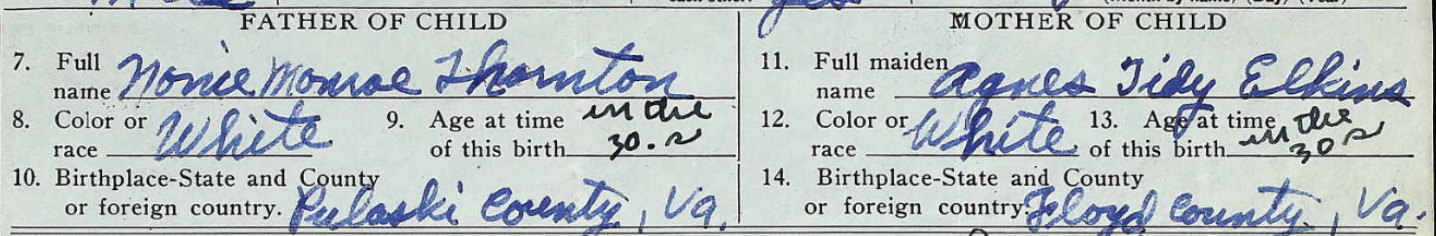 FATHER OF CHILD MOTHER OF CHILD
7. Full name Nonie Monroe Thornton 11. Full maiden name Agnes Tidy Elkins
8. Color or race White 9. Age at time of this birth in the 30.s 12. Color or race White 13. Age at time of this birth in the 30s
10. Birthplace-State and County or foreign country. Pulaski County, Va. 14. Birthplace-State and County or foreign country. Floyd County, Va.